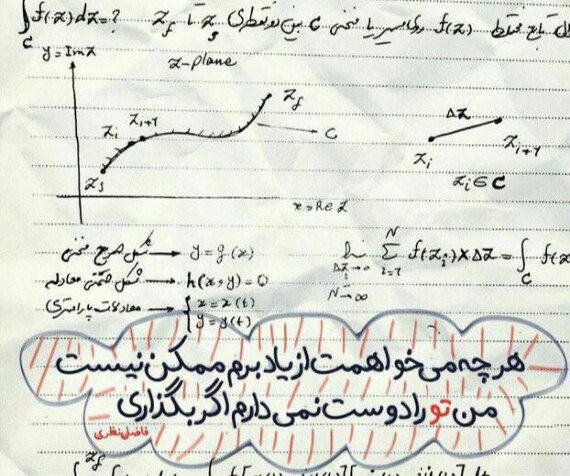 ∫_C f(z)dz=? z_f تا z_s بین دو نقطه‌ی C روی مسیر یا منحنی f(z) تابع مختلط
y=Im z
z-plane
z_f
z_i z_{i+1}
C
z_s
x=Re z
Δz
z_i z_{i+1}
z_i ∈ C
شکل صریح منحنی → y=g(x)
شکل ضمنی معادله → h(x,y)=0
معادلات پارامتری → { x=x(t)
y=y(t)
lim Σ f(z_i)×Δz = ∫_C f(z
Δz→0 i=1 N
N→∞
هر چه می‌خواهمت از یاد برم ممکن نیست
من تو را دوست نمی‌دارم اگر بگذاری
فاضل نظری
z_f